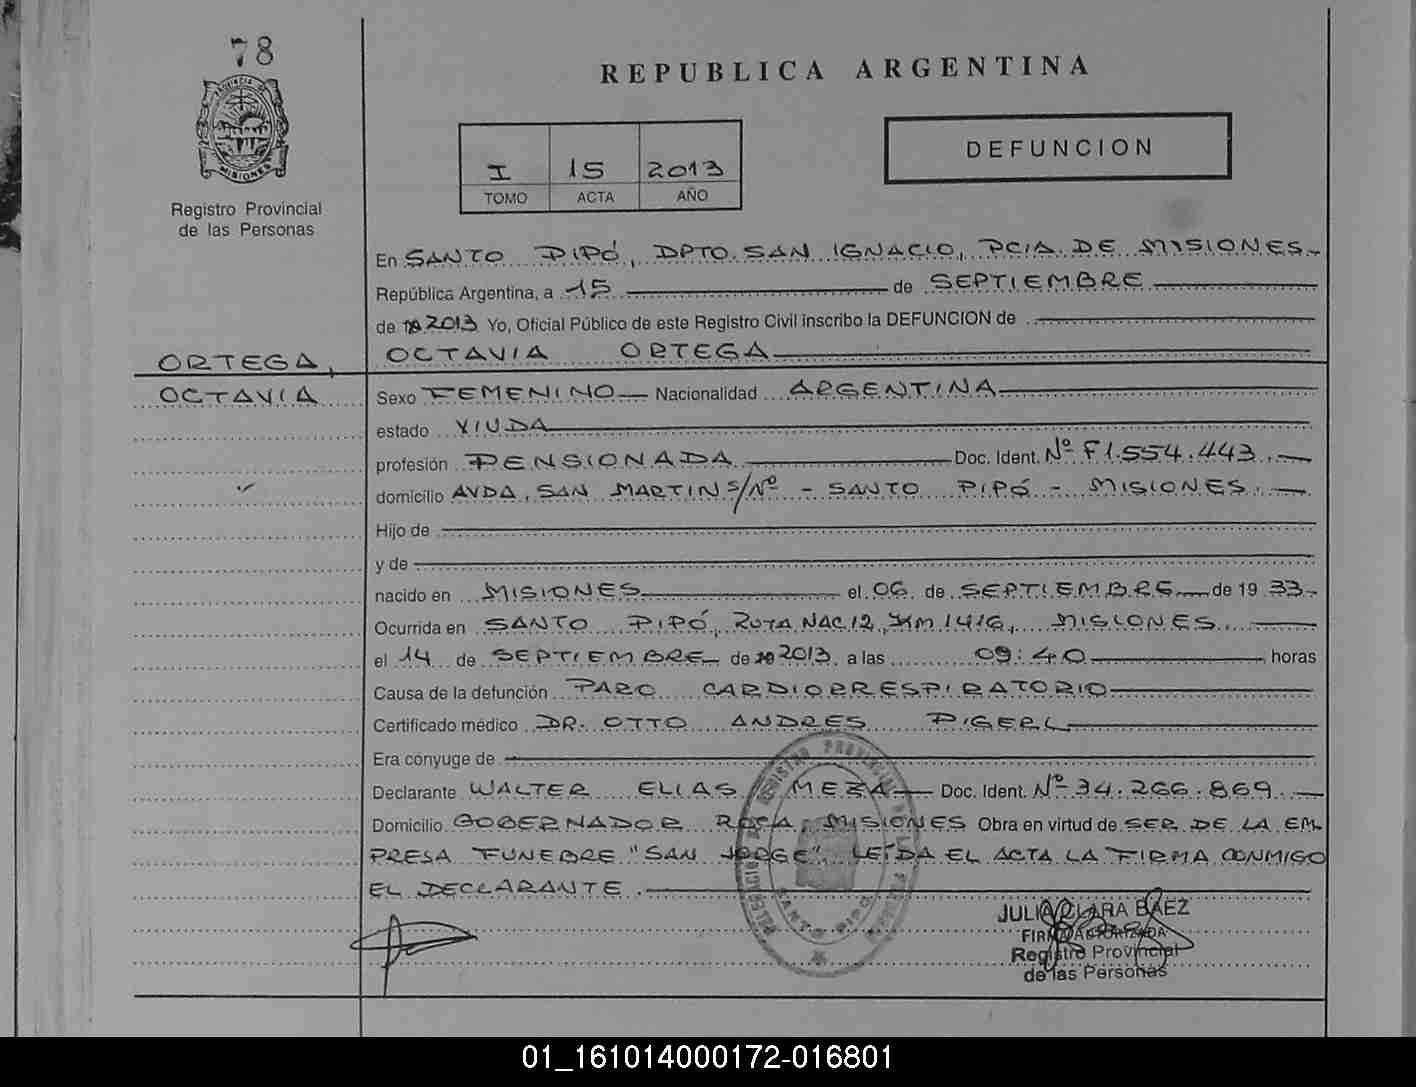 78
PROVINCIA DE
MISIONES
Registro Provincial
de las Personas
REPUBLICA ARGENTINA
I 15 2013
TOMO ACTA AÑO
DEFUNCION
En SANTO PIPÓ, DPTO. SAN IGNACIO, PCIA. DE MISIONES.-
República Argentina, a 15 de SEPTIEMBRE
de 2013 Yo, Oficial Público de este Registro Civil inscribo la DEFUNCION de
OCTAVIA ORTEGA
ORTEGA,
OCTAVIA
Sexo FEMENINO Nacionalidad ARGENTINA
estado VIUDA
profesión PENSIONADA Doc. Ident. Nº F1.554.443.
domicilio AVDA. SAN MARTIN S/Nº - SANTO PIPÓ - MISIONES.
Hijo de
y de
nacido en MISIONES el 06 de SEPTIEMBRE de 19 33-
Ocurrida en SANTO PIPÓ, RUTA NAC.12, KM 1416, MISIONES.
el 14 de SEPTIEMBRE de 2013. a las 09:40 horas
Causa de la defunción PARO CARDIORRESPIRATORIO
Certificado médico DR. OTTO ANDRES PIGERL
Era cónyuge de
Declarante WALTER ELIAS MEZA Doc. Ident. Nº 34.266.869.
Domicilio GOBERNADOR ROCA, MISIONES Obra en virtud de SER DE LA EM-
PRESA FUNEBRE "SAN JORGE". LEÍDA EL ACTA LA FIRMA CONMIGO
EL DECLARANTE.
REGISTRO PROVINCIAL DE LAS PERSONAS
SANTO PIPO
JULIA CLARA BAEZ
FIRMA AUTORIZADA
Registro Provincial
de las Personas
01_161014000172-016801